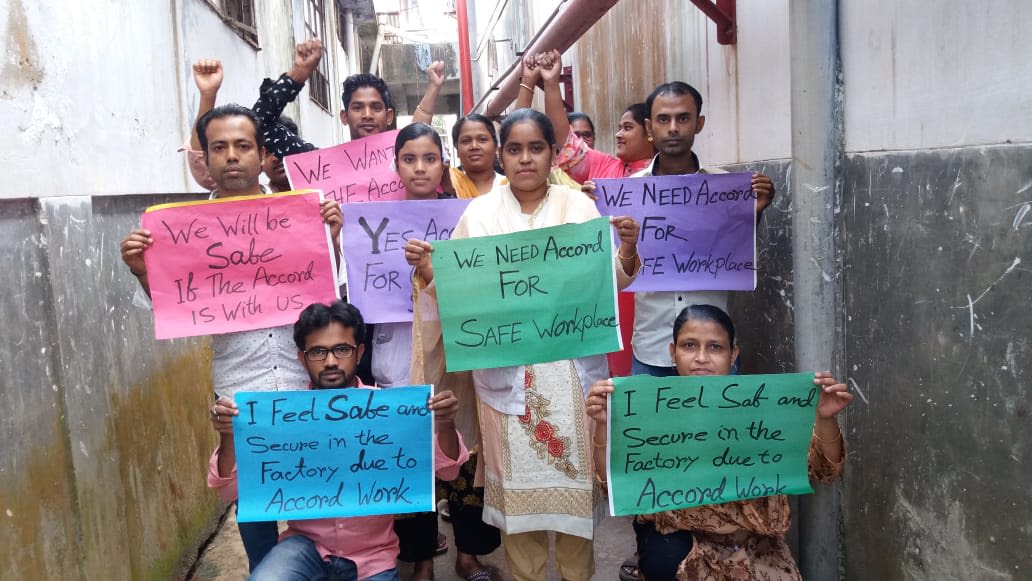 WE WANT
THE ACCORD
We Will be
Sabe
If The Accord
Is With US
YES Acc
FOR S
WE NEED Accord
FOR
SAFE Workplace
WE NEED Accord
FOR
FE Workplace
I Feel Sabe and
Secure in the
Factory due to
Accord Work.
I Feel Saf and
Secure in the
Factory due to
Accord Work